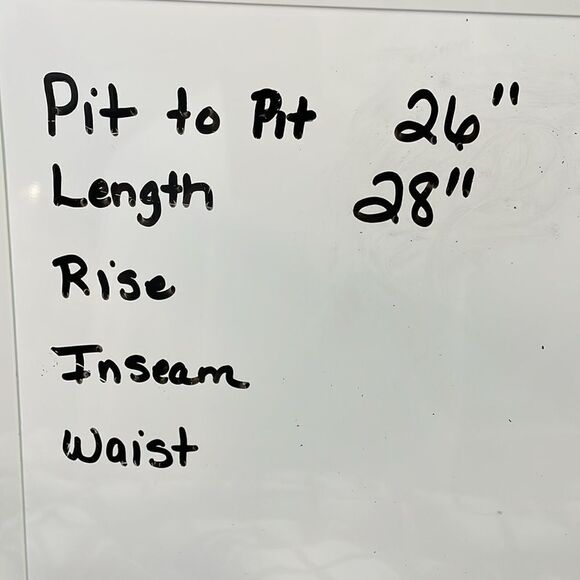 Pit to Pit 26"
Length 28"
Rise
Inseam
Waist